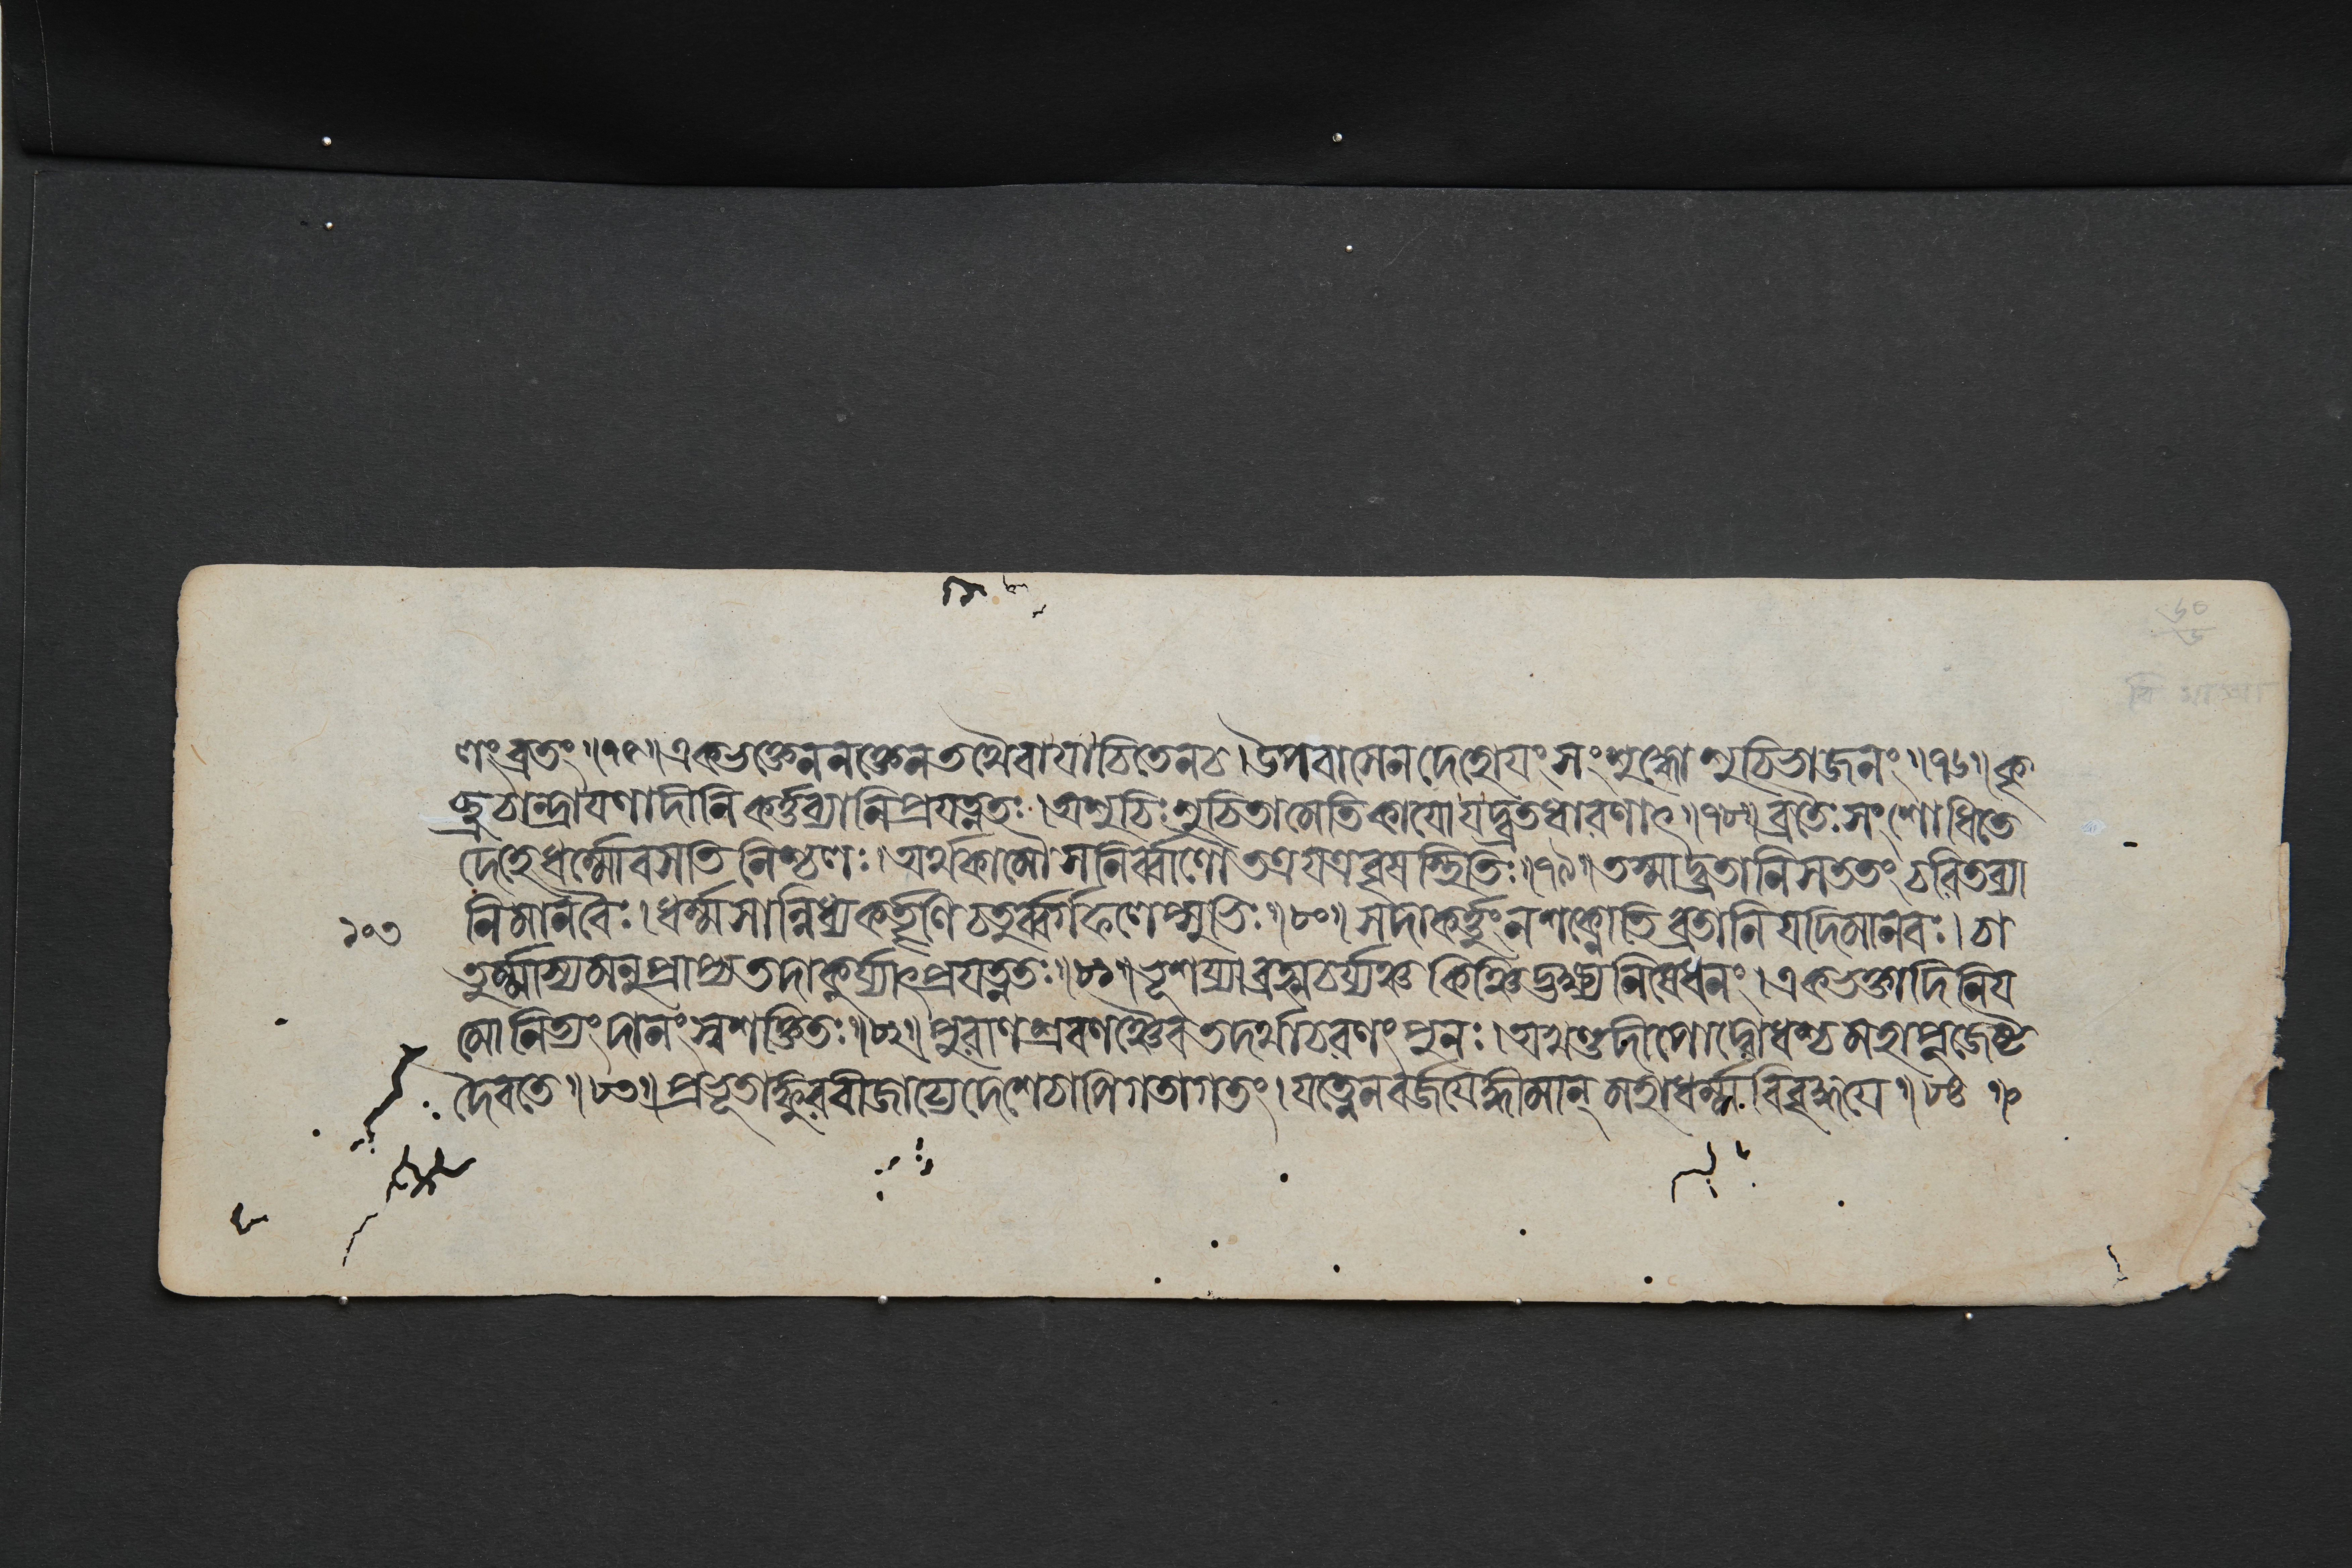 ণং ব্রতং॥৭৬॥একভুক্তেন নক্তেন তথৈবাযাচিতেন চ। উপবাসেন দেহোযং সংশুদ্ধো শুচিভাজনং॥৭৭॥কৃ
চ্ছ্রচান্দ্রাযণাদীনি কর্ত্তব্যানি প্রযত্নতঃ। অশুচিঃ শুচিতামেতি কাযো যদ্ব্রতধারণাৎ॥৭৮॥ব্রতৈঃ সংশোধিতে
দেহে ধর্ম্মো বসতি নিশ্চলঃ। অর্থকামৌ সনির্ব্বাণৌ তত্র যত্র বৃষস্থিতিঃ॥৭৯॥তস্মাদ্ব্রতানি সততং চরিতব্যা
১০৩ নি মানবৈঃ। ধর্ম্মসান্নিধ্যকর্তৃণি চতুর্ব্বর্গফলেপ্সুভিঃ॥৮০॥সদা কর্ত্তুং ন শক্নোতি ব্রতানি যদি মানবঃ। চা
তুর্ম্মাস্যমনুপ্রাপ্য তদা কুর্য্যাৎ প্রযত্নতঃ॥৮১॥ভূশয্যা ব্রহ্মচর্য্যঞ্চ কিঞ্চিদ্ভক্ষ্যনিষেধনং। একভুক্তাদিনিয
মো নিত্যং দানং স্বশক্তিতঃ॥৮২॥পুরাণশ্রবণঞ্চৈব তদর্থাচরণং পুনঃ। অখণ্ডদীপোদ্বোধশ্চ মহাপূজেষ্ট
দৈবতে॥৮৩॥প্রভূতাঙ্কুরবীজাঢ্যে দেশে চাপি গতাগতং। যত্নেন বর্জযেদ্ধীমান্ মহাধর্ম্মবিবৃদ্ধযে॥৮৪॥